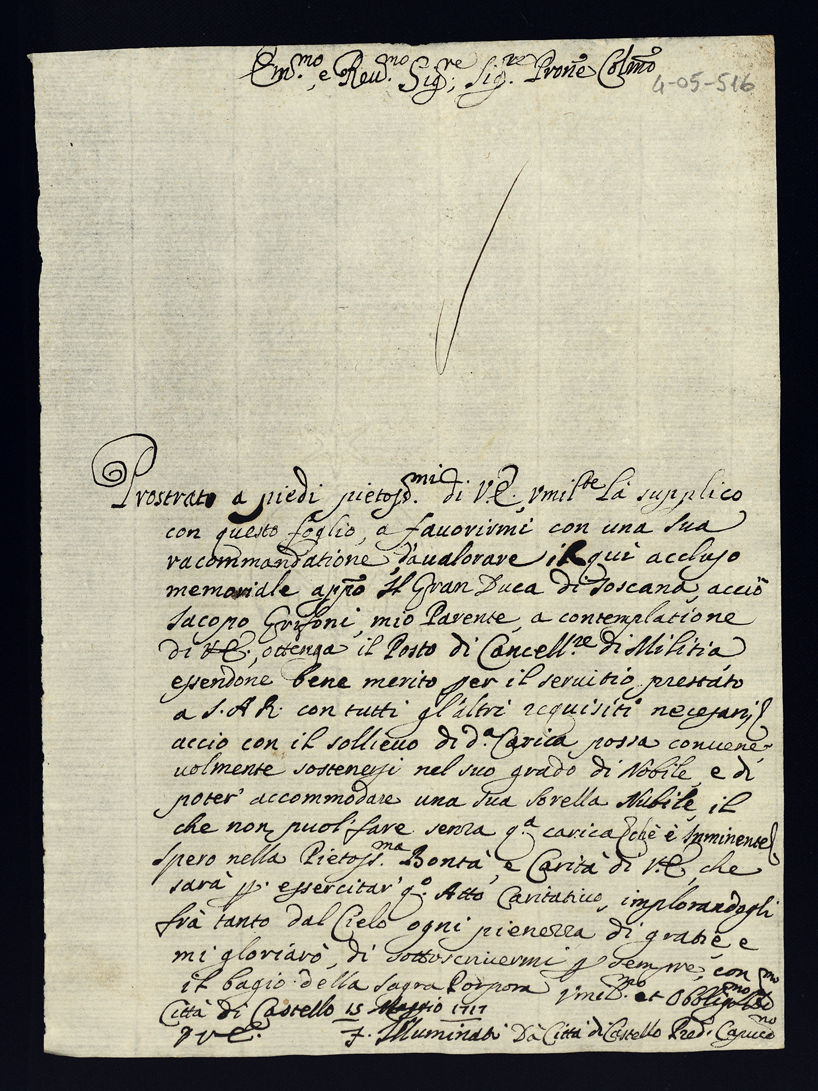 Em.mo, e Reu.mo Sig.re; Sig.re Prone Colmo
4-05-516
Prostrato a piedi pietoss.mi di V.E. vmilte La supplico
con questo foglio, a fauorirmi con una sua
racommandatione, d'aualorare il qui accluso
memoriale appo Il Gran Duca di Toscana, acciò
Jacopo Grifoni, mio Parente, a contemplatione
di V.E., ottenga il Posto di Cancell.re di Militia
essendone bene merito per il seruitio prestato
a S.A.R. con tutti gl'altri requisiti necessarij
accio con il sollieuo di d.a Carica possa conuene-
uolmente sostenersi nel suo grado di Nobile, e di
poter' accommodare una sua sorella Nubile, il
che non puol' fare senza q.a carica che è Imminente
Spero nella Pietoss.ma Bontà, e Carità di V.E. che
sarà p. essercitar' q.o Atto Caritatiuo, implorandogli
frà tanto dal Cielo ogni pienezza di gratie, e
mi gloriarò, di sottoscriuermi p sempre, con
il bagio della sagra Porpora vmil.mo et Obbligmo
Città di Castello 15 Maggio 1717
F. Illuminati Da Città di Castello Pred. Capuccno